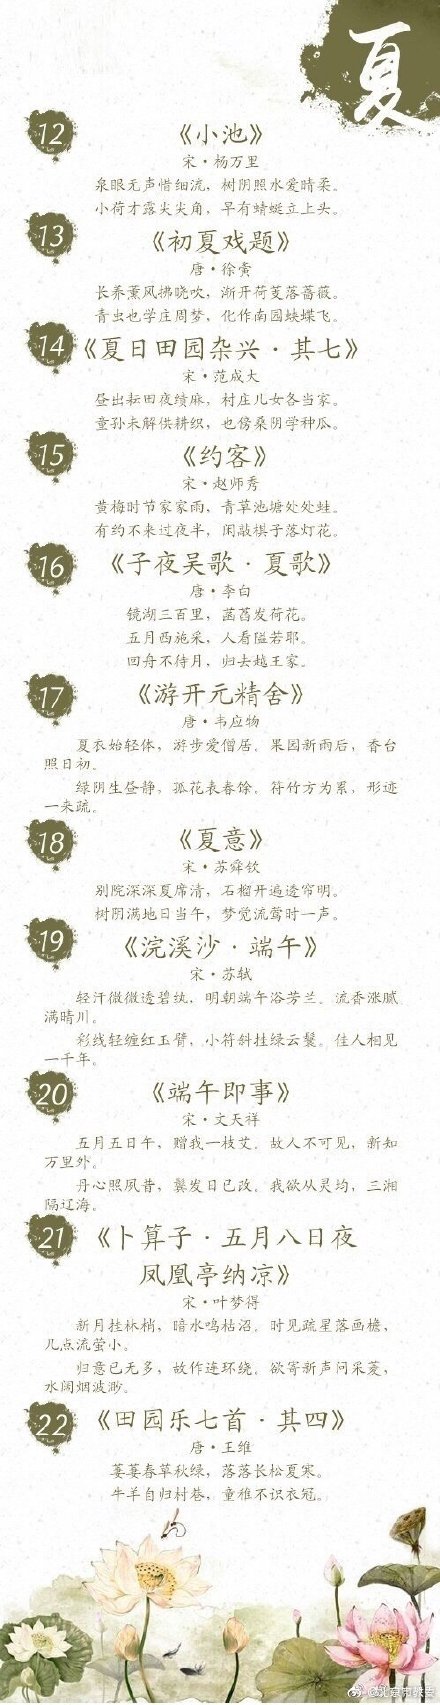 夏
12
《小池》
宋·杨万里
泉眼无声惜细流，树阴照水爱晴柔。
小荷才露尖尖角，早有蜻蜓立上头。
13
《初夏戏题》
唐·徐夤
长养薰风拂晓吹，渐开荷芰落蔷薇。
青虫也学庄周梦，化作南园蛱蝶飞。
14
《夏日田园杂兴·其七》
宋·范成大
昼出耘田夜绩麻，村庄儿女各当家。
童孙未解供耕织，也傍桑阴学种瓜。
15
《约客》
宋·赵师秀
黄梅时节家家雨，青草池塘处处蛙。
有约不来过夜半，闲敲棋子落灯花。
16
《子夜吴歌·夏歌》
唐·李白
镜湖三百里，菡萏发荷花。
五月西施采，人看隘若耶。
回舟不待月，归去越王家。
17
《游开元精舍》
唐·韦应物
夏衣始轻体，游步爱僧居。果园新雨后，香台
照日初。
绿阴生昼静，孤花表春馀。符竹方为累，形迹
一来疏。
18
《夏意》
宋·苏舜钦
别院深深夏席清，石榴开遍透帘明。
树阴满地日当午，梦觉流莺时一声。
19
《浣溪沙·端午》
宋·苏轼
轻汗微微透碧纨，明朝端午浴芳兰。流香涨腻
满晴川。
彩线轻缠红玉臂，小符斜挂绿云鬟。佳人相见
一千年。
20
《端午即事》
宋·文天祥
五月五日午，赠我一枝艾。故人不可见，新知
万里外。
丹心照夙昔，鬓发日已改。我欲从灵均，三湘
隔辽海。
21
《卜算子·五月八日夜
凤凰亭纳凉》
宋·叶梦得
新月挂林梢，暗水鸣枯沼。时见疏星落画檐，
几点流萤小。
归意已无多，故作连环绕。欲寄新声问采菱，
水阔烟波渺。
22
《田园乐七首·其四》
唐·王维
萋萋春草秋绿，落落长松夏寒。
牛羊自归村巷，童稚不识衣冠。